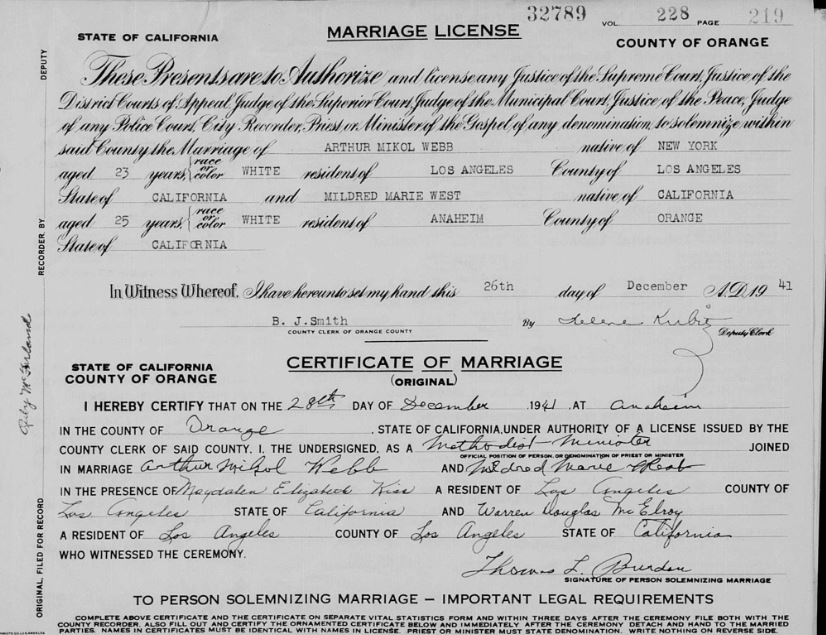 32789 VOL. 228 PAGE 219
STATE OF CALIFORNIA MARRIAGE LICENSE COUNTY OF ORANGE
These Presents are to Authorize and license any Justice of the Supreme Court, Justice of the
District Courts of Appeal, Judge of the Superior Court, Judge of the Municipal Court, Justice of the Peace, Judge
of any Police Court, City Recorder, Priest or Minister of the Gospel of any denomination, to solemnize within
said County the Marriage of ARTHUR MIKOL WEBB native of NEW YORK
aged 23 years, race or color WHITE residents of LOS ANGELES County of LOS ANGELES
State of CALIFORNIA and MILDRED MARIE WEST native of CALIFORNIA
aged 25 years, race or color WHITE residents of ANAHEIM County of ORANGE
State of CALIFORNIA
In Witness Whereof, I have hereunto set my hand this 26th day of December A.D. 19 41
B. J. Smith By
COUNTY CLERK OF ORANGE COUNTY Deputy Clerk
STATE OF CALIFORNIA
COUNTY OF ORANGE
CERTIFICATE OF MARRIAGE
(ORIGINAL)
I HEREBY CERTIFY THAT ON THE 28th DAY OF December 1941 AT Anaheim
IN THE COUNTY OF Orange, STATE OF CALIFORNIA, UNDER AUTHORITY OF A LICENSE ISSUED BY THE
COUNTY CLERK OF SAID COUNTY, I, THE UNDERSIGNED, AS A Methodist Minister JOINED
OFFICIAL POSITION OF PERSON, OR DENOMINATION OF PRIEST OR MINISTER
IN MARRIAGE Arthur Mikol Webb AND Mildred Marie
IN THE PRESENCE OF Magdalen Elizabeth Kiss A RESIDENT OF Los Angeles COUNTY OF
Los Angeles STATE OF California AND Warren Douglas McElroy
A RESIDENT OF Los Angeles COUNTY OF Los Angeles STATE OF California
WHO WITNESSED THE CEREMONY.
Thomas L.
SIGNATURE OF PERSON SOLEMNIZING MARRIAGE
TO PERSON SOLEMNIZING MARRIAGE – IMPORTANT LEGAL REQUIREMENTS
COMPLETE ABOVE CERTIFICATE AND THE CERTIFICATE ON SEPARATE VITAL STATISTICS FORM AND WITHIN THREE DAYS AFTER THE CEREMONY FILE BOTH WITH THE
COUNTY RECORDER. ALSO FILL OUT AND CERTIFY THE ORNAMENTED CERTIFICATE BELOW AND IMMEDIATELY AFTER THE CEREMONY DETACH AND HAND TO THE MARRIED
PARTIES. NAMES IN CERTIFICATES MUST BE IDENTICAL WITH NAMES IN LICENSE. PRIEST OR MINISTER MUST STATE DENOMINATION. WRITE NOTHING ON REVERSE SIDE.
ORIGINAL, FILED FOR RECORD RECORDER, BY DEPUTY